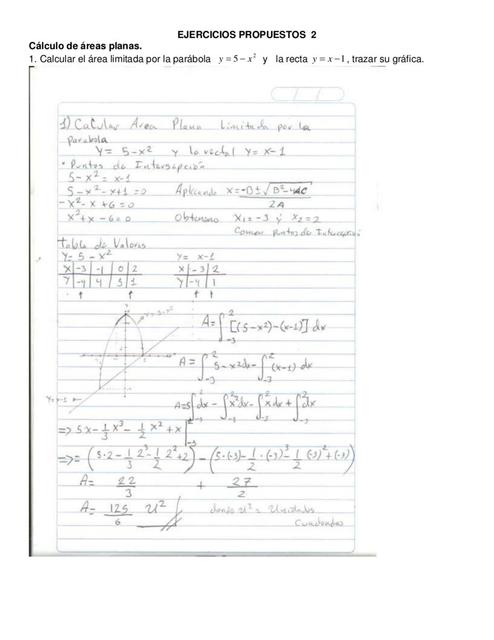 EJERCICIOS PROPUESTOS 2
Cálculo de áreas planas.
1. Calcular el área limitada por la parábola y = 5 − x² y la recta y = x − 1, trazar su gráfica.
1) Calcular Area Plana Limitada por la
parabola
y = 5 - x² y la recta y = x-1
• Puntos de Intersepción
5 - x² = x-1
5 - x² - x + 1 = 0 Aplicando x = -B ± √B² - 4AC / 2A
- x² - x + 6 = 0
x² + x - 6 = 0 Obtenemo x₁ = -3 y x₂ = 2
Como puntos de
Tabla de Valores
Y = 5 - x² Y = x-1
X -3 -1 0 2 X -3 2
Y -4 4 5 1 Y -4 1
Y = 5 - x²
A = ∫₋₃² [(5 - x²) - (x-1)] dx
A = ∫₋₃² 5 - x² dx - ∫₋₃² (x-1) dx
A = 5∫₋₃² dx - ∫₋₃² x² dx - ∫₋₃² x dx + ∫₋₃² dx
=> 5x - 1/3 x³ - 1/2 x² + x |₋₃²
=> = (5·2 - 1/3 2³ - 1/2 2² + 2) - (5·(-3) - 1/2 · (-3)³ - 1/2 (-3)² + (-3))
A = 22/3 + 27/2
A = 125/6 u² donde u² = Unidades
Cuadradas